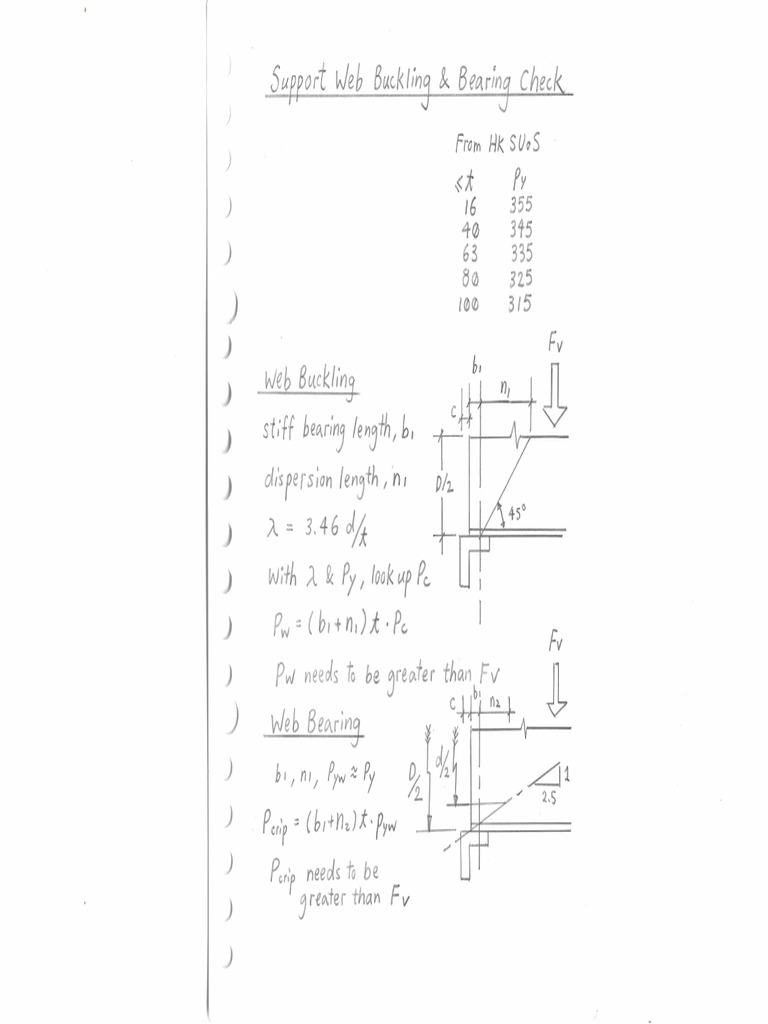 Support Web Buckling & Bearing Check
From HK SUoS
≤t Py
16 355
40 345
63 335
80 325
100 315
Web Buckling
stiff bearing length, b1
dispersion length, n1
λ = 3.46 d/t
With λ & Py, look up Pc
Pw = (b1+n1)t·Pc
Pw needs to be greater than Fv
Fv
b1
n1
c
D/2
45°
Web Bearing
b1, n1, Pyw ≈ Py
Pcrip = (b1+n2)t·pyw
Pcrip needs to be
greater than Fv
Fv
c
b1
n2
D/2
d/2
1
2.5